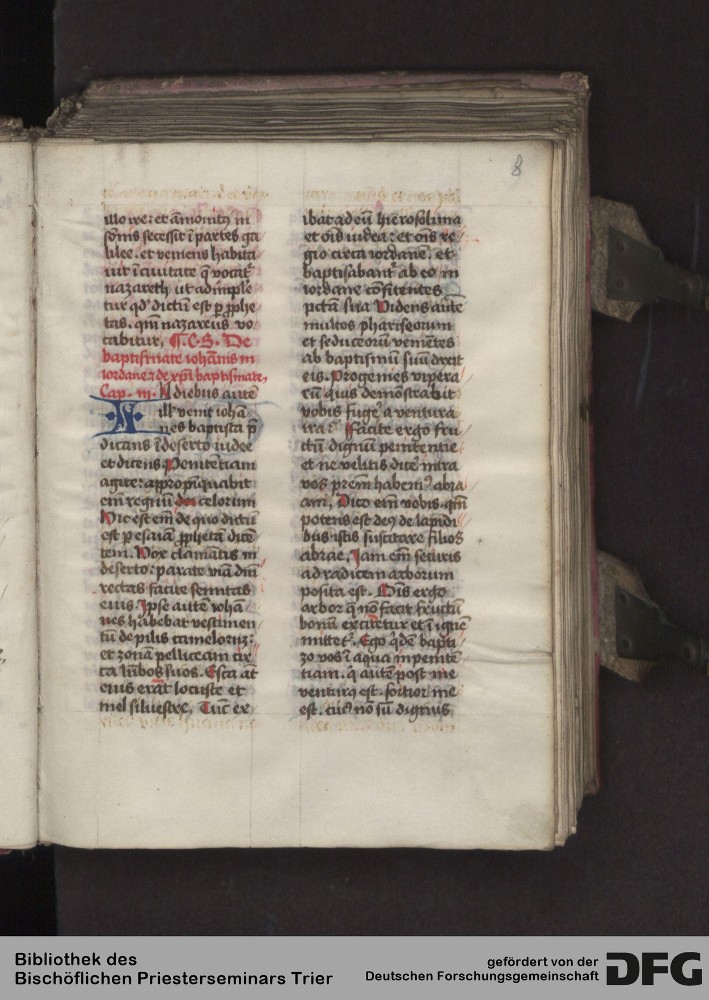 8
illo ire: et āmonitꝰ in
sōnis secessit ī partes ga
lilee. et veniens habita
uit ī ciuitate q̄ vocat᷑
nazareth ut adimple
tur qd' dictū est ꝑ ꝓphe
tas. qm̄ nazareus vo
cabitur,
De
baptismate iohānis in
iordane ⁊ de xp̄i baptismate,
Cap. iii. N diebus autē
I ill' venit iohā
nes baptista p̄
dicans ī deserto iudee
et dicens Penitentiam
agite: appropīquabit
em̄ regnū celorum
Hic est em̄ de quo dictū
est ꝑ esaiam ꝓphetā dicē
tem. Vox clamātis in
deserto: parate viā dn̄i
rectas facite semitas
eius. Ipse autē iohā
nes habebat vestimen
tū de pilis cameloruꝫ:
et zonam pelliceam cir
ca lūbos suos. Esca āt
eius erāt locuste et
mel siluestre, Tūc ex
ibat ad eū hierosolima
et oīs iudea: et oīs re
gio circa iordanē. et
baptisabant᷑ ab eo in
iordane cōfitentes
pctā sua Videns autē
multos phariseorum
et seduceorū veniētes
ab baptismū suū dixit
eis. Progenies vipera
rū quis demōstrabit
vobis fuge᷑ a ventura
ira? Facite ergo fru
ctū dignū penitentie
et ne velitis dice᷑ intra
vos prēm habemꝰ abra
am, Dico em̄ vobis. qm̄
potens est deꝰ de lapidi
bus istis suscitare filios
abrae, Iam em̄ securis
ad radicem arborum
posita est. Oīs ergo
arbor q̄ nō facit fructū
bonū excidetur et ī ignē
mittet᷑. Ego qdē bapti
zo vos ī aqua in penitē
tiam. q̄ autē post me
venturꝰ est. fortior me
est. cuiꝰ nō sū dignus
Bibliothek des
Bischöflichen Priesterseminars Trier
gefördert von der
Deutschen Forschungsgemeinschaft
DFG